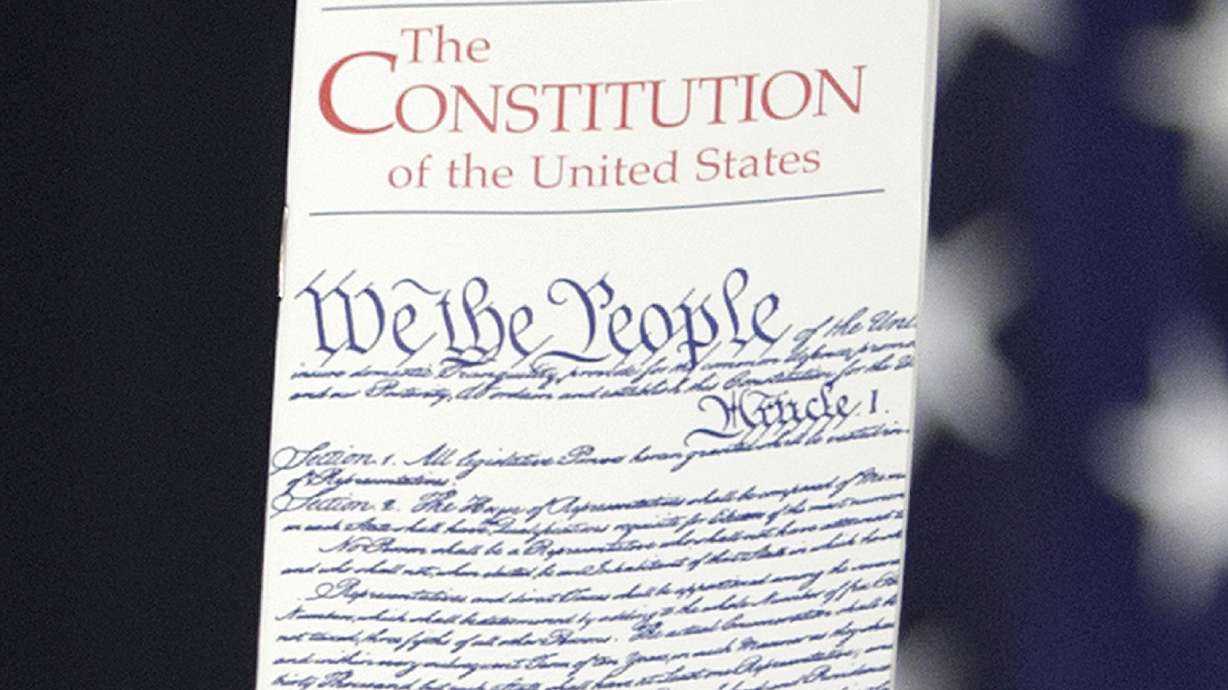 The
CONSTITUTION
of the United States
We the People of the Uni
insure domestic Tranquility, provide for the common defence, promo
and our Posterity, do ordain and establish this Constitution for the U
Article I.
Section. 1. All legislative Powers herein granted shall be vested in
of Representatives.
Section. 2. The House of Representatives shall be composed of Mem
in each State shall have Qualifications requisite for Electors of the most numer
No Person shall be a Representative who shall not have attained t
and who shall not, when elected, be an Inhabitant of that State in which he sh
Representatives and direct Taxes shall be apportioned among the several
Numbers, which shall be determined by adding to the whole Number of free Per
not taxed, three fifths of all other Persons. The actual Enumeration shall be
and within every subsequent Term of ten Years, in such Manner as they shall
thirty Thousand, but each State shall have at Least one Representative; and